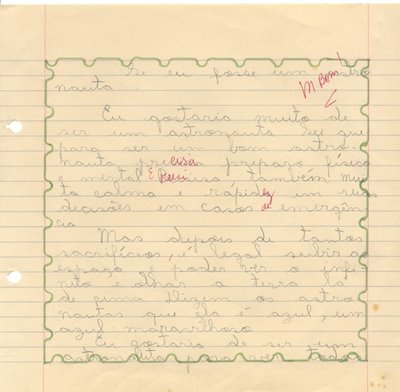 Se eu fosse um astro
nauta
M Bom!
Eu gostaria muito de
ser um astronauta Sei que
para ser um bom astro-
nauta precisa preparo físico
e mental E também mui
ta calma e rapidez em suas
decisões em casos de emergên
cia
Mas depois de tantos
sacrifícios, é legal subir ao
espaço e poder ver o infi
nito e olhar a terra lá
de cima Dizem os astro
nautas que ela é azul, um
azul maravilhoso
Eu gostaria de ser um
astronauta para ver todas